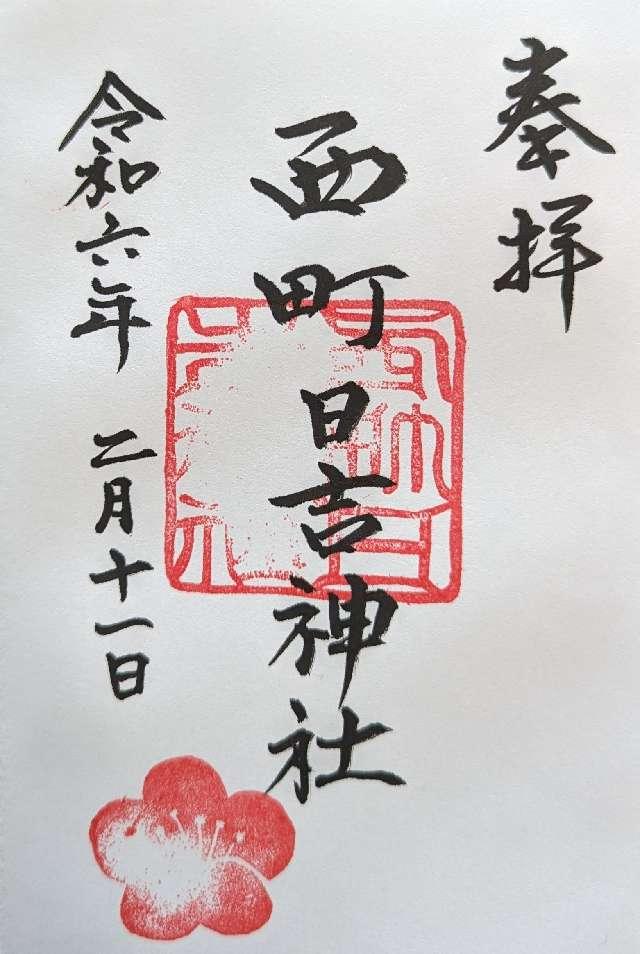 奉拝
西町日吉神社
令和六年 二月十一日